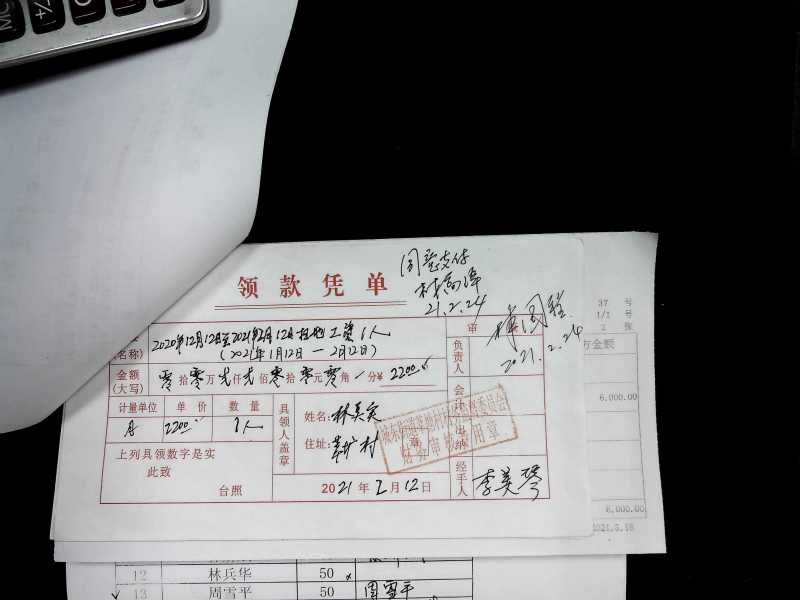 领款凭单
同意支付
21.2.24
2021.2.24
(名称)
2020年12月12日至2021年2月12日 工资 1人
(2021年1月12日 — 2月12日)
审
负责人
金额
(大写)
零拾零万贰仟贰佰零拾零元零角/分¥2200.00
计量单位
单价
数量
月
2200.00
1人
具领人盖章
姓名:林美宾
住址:村
会计
出纳
经手人
李美琴
上列具领数字是实
此致
台照
2021年2月12日
37 号
1/1 号
2 张
方金额
6,000.00
6,000.00
2021.3.18
12 林兵华 50
13 周雪平 50 周雪平